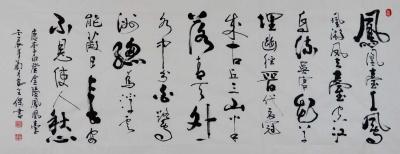 鳳凰臺上鳳
凰遊鳳去臺空江
自流吳宮花草
埋幽徑晉代衣冠
成古丘三山半
落青天外
二水中分白鷺
洲總為浮雲
能蔽日長安
不見使人愁
李白登金陵鳳凰臺
壬辰年書